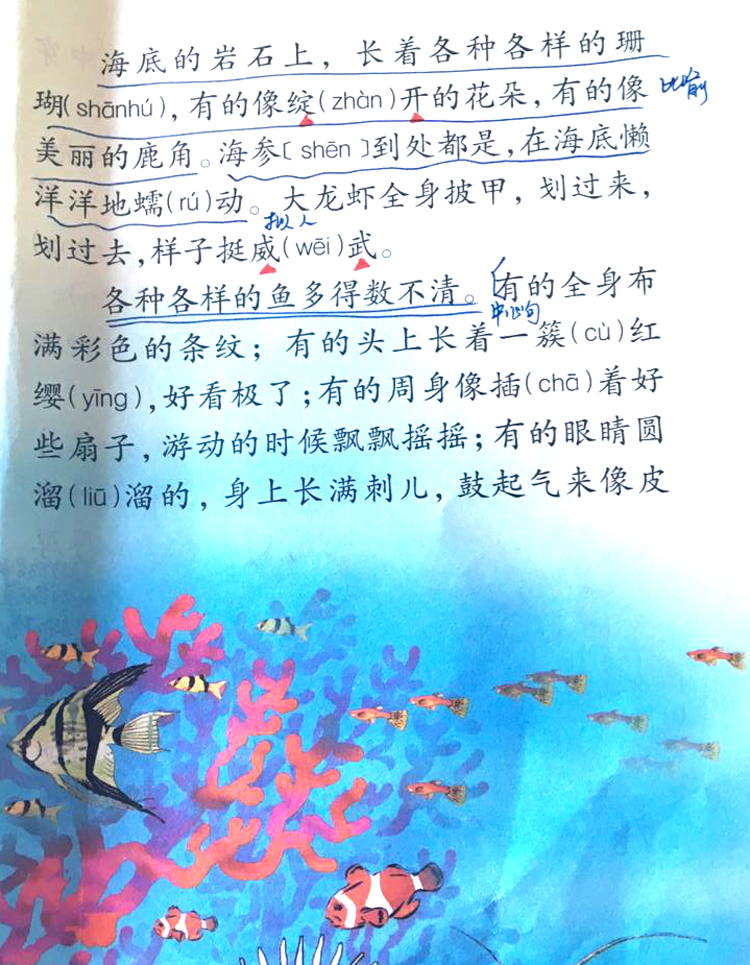 海底的岩石上，长着各种各样的珊
瑚(shānhú)，有的像绽(zhàn)开的花朵，有的像
比喻
美丽的鹿角。海参〔shēn〕到处都是，在海底懒
洋洋地蠕(rú)动。大龙虾全身披甲，划过来，
拟人
划过去，样子挺威(wēi)武。
各种各样的鱼多得数不清。有的全身布
中心句
满彩色的条纹；有的头上长着一簇(cù)红
缨(yīng)，好看极了；有的周身像插(chā)着好
些扇子，游动的时候飘飘摇摇；有的眼睛圆
溜(liū)溜的，身上长满刺儿，鼓起气来像皮